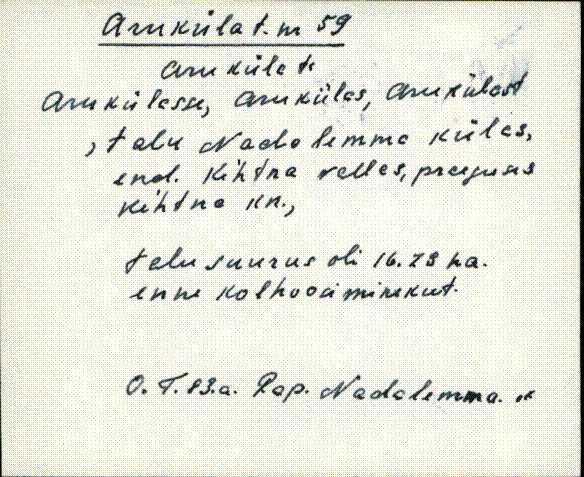 Aruküla t. nr 59
Aruküla t.
Arukülasse, Arukülas, Arukülast
, talu Nadalemma külas,
end. Kehtna vallas, praeguses
Kehtna kn.,
talu suurus oli 16.28 ha.
enne kolhoosiminekut.
O. T. 83.a. Rap. Nadalemma.